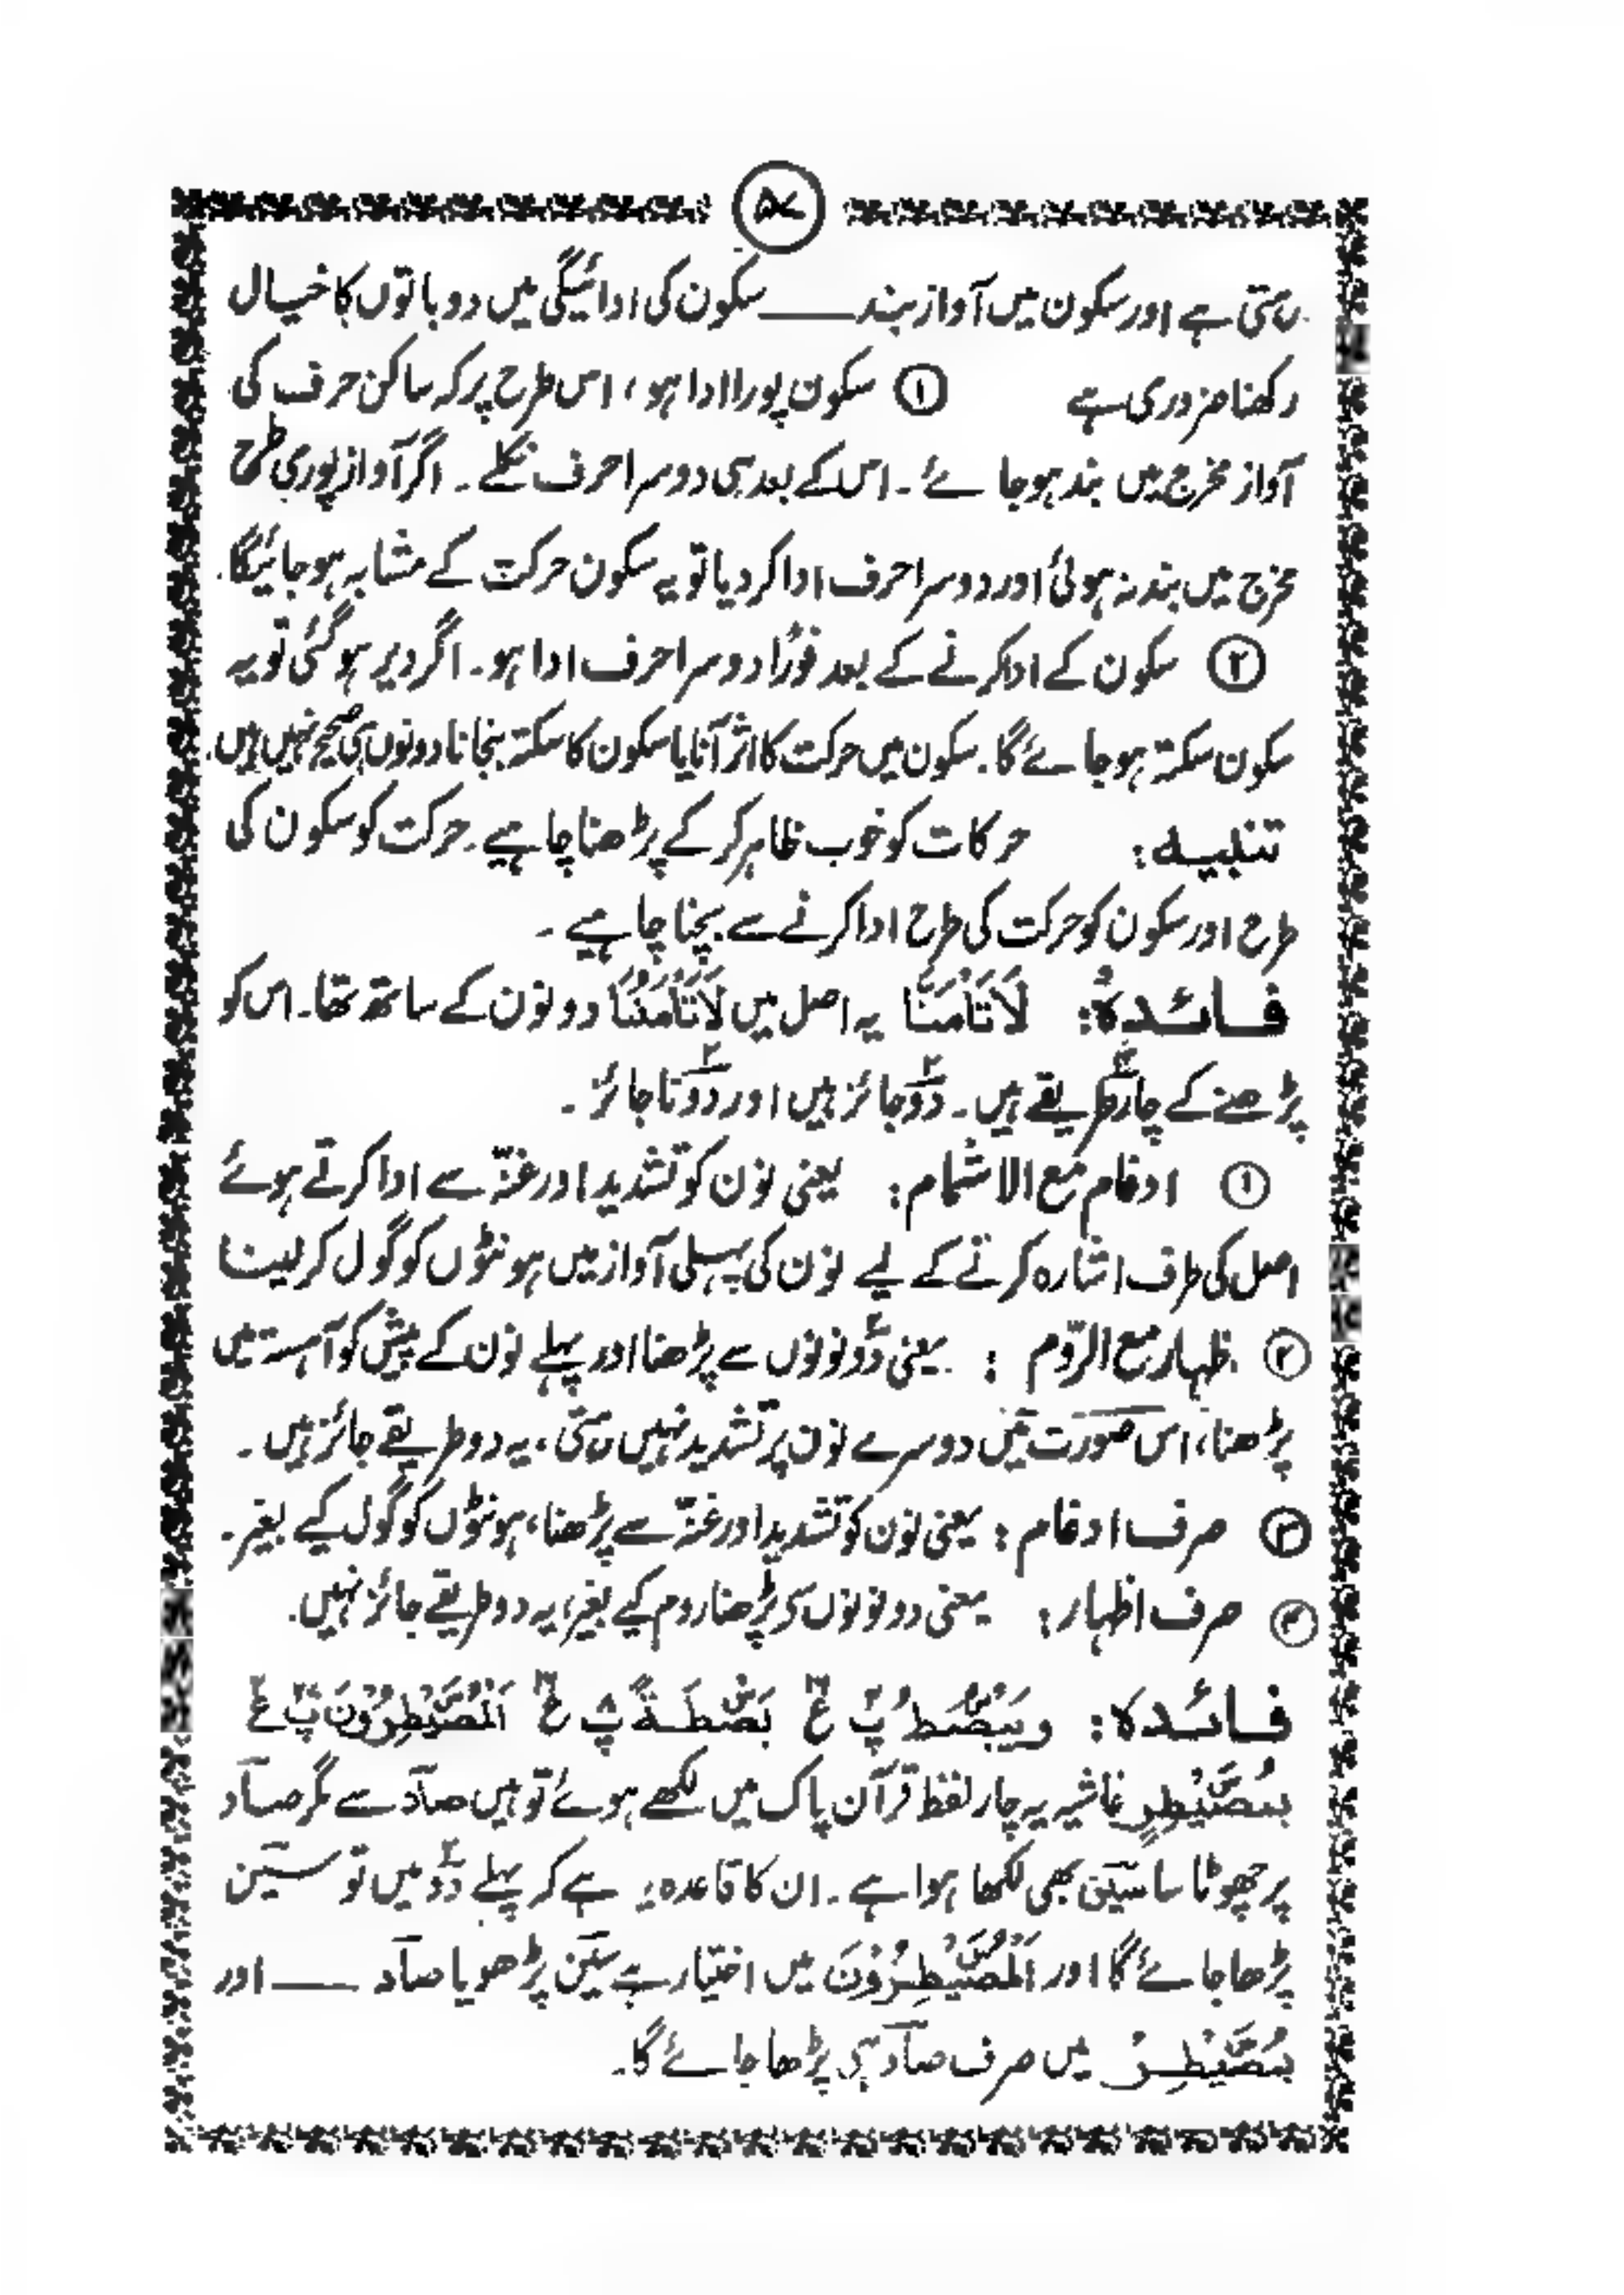 ۵۷
رہتی ہے اور سکون میں آواز بند ــــــ سکون کی ادائیگی میں دو باتوں کا خیال
رکھنا ضروری ہے ① سکون پورا ادا ہو ، اس طرح پر کہ ساکن حرف کی
آواز مخرج میں بند ہو جائے ۔ اس کے بعد ہی دوسرا حرف نکلے ۔ اگر آواز پوری طرح
مخرج میں بند نہ ہوئی اور دوسرا حرف ادا کر دیا تو یہ سکون حرکت کے مشابہ ہو جائیگا ۔
② سکون کے ادا کرنے کے بعد فورًا دوسرا حرف ادا ہو ۔ اگر دیر ہو گئی تو یہ
سکون سکتہ ہو جائے گا ۔ سکون میں حرکت کا اثر آنا یا سکون کا سکتہ بنجانا دونوں ہی صحیح نہیں ہیں ۔
تنبیہ : حرکات کو خوب ظاہر کر کے پڑھنا چاہیے ۔ حرکت کو سکون کی
طرح اور سکون کو حرکت کی طرح ادا کرنے سے بچنا چاہیے ۔
فائدہ : لَاتَأْمَنَّا یہ اصل میں لَاتَأْمَنُنَا دو نون کے ساتھ تھا ۔ اس کو
پڑھنے کے چار طریقے ہیں ۔ دو جائز ہیں اور دو ناجائز ۔
① ادغام مع الاشمام : یعنی نون کو تشدید اور غنّہ سے ادا کرتے ہوئے
اصل کی طرف اشارہ کرنے کے لیے نون کی پہلی آواز میں ہونٹوں کو گول کر لینا
② اظہار مع الرّوم : یعنی دو نونوں سے پڑھنا اور پہلے نون کے پیش کو آہستہ میں
پڑھنا ، اس صورت میں دوسرے نون پر تشدید نہیں رہتی ، یہ دو طریقے جائز ہیں ۔
③ صرف ادغام : یعنی نون کو تشدید اور غنّہ سے پڑھنا ، ہونٹوں کو گول کیے بغیر ۔
④ صرف اظہار : یعنی دو نونوں کو پڑھنا روم کیے بغیر ، یہ دو طریقے جائز نہیں ۔
فائدہ : وَیَبْصُۜطُ پ ع بَصْۜطَةً پ ع اَلْمُصَۜیْطِرُوْنَ پ ع
بِمُصَۜیْطِرٍ غاشیہ یہ چار لفظ قرآن پاک میں لکھے ہوئے تو ہیں صآد سے مگر صآد
پر چھوٹا سا سین بھی لکھا ہوا ہے ۔ ان کا قاعدہ یہ ہے کہ پہلے دو میں تو سین
پڑھا جائے گا اور اَلْمُصَۜیْطِرُوْنَ میں اختیار ہے سین پڑھو یا صآد ــــــ اور
بِمُصَۜیْطِرٍ میں صرف صآد ہی پڑھا جائے گا ۔